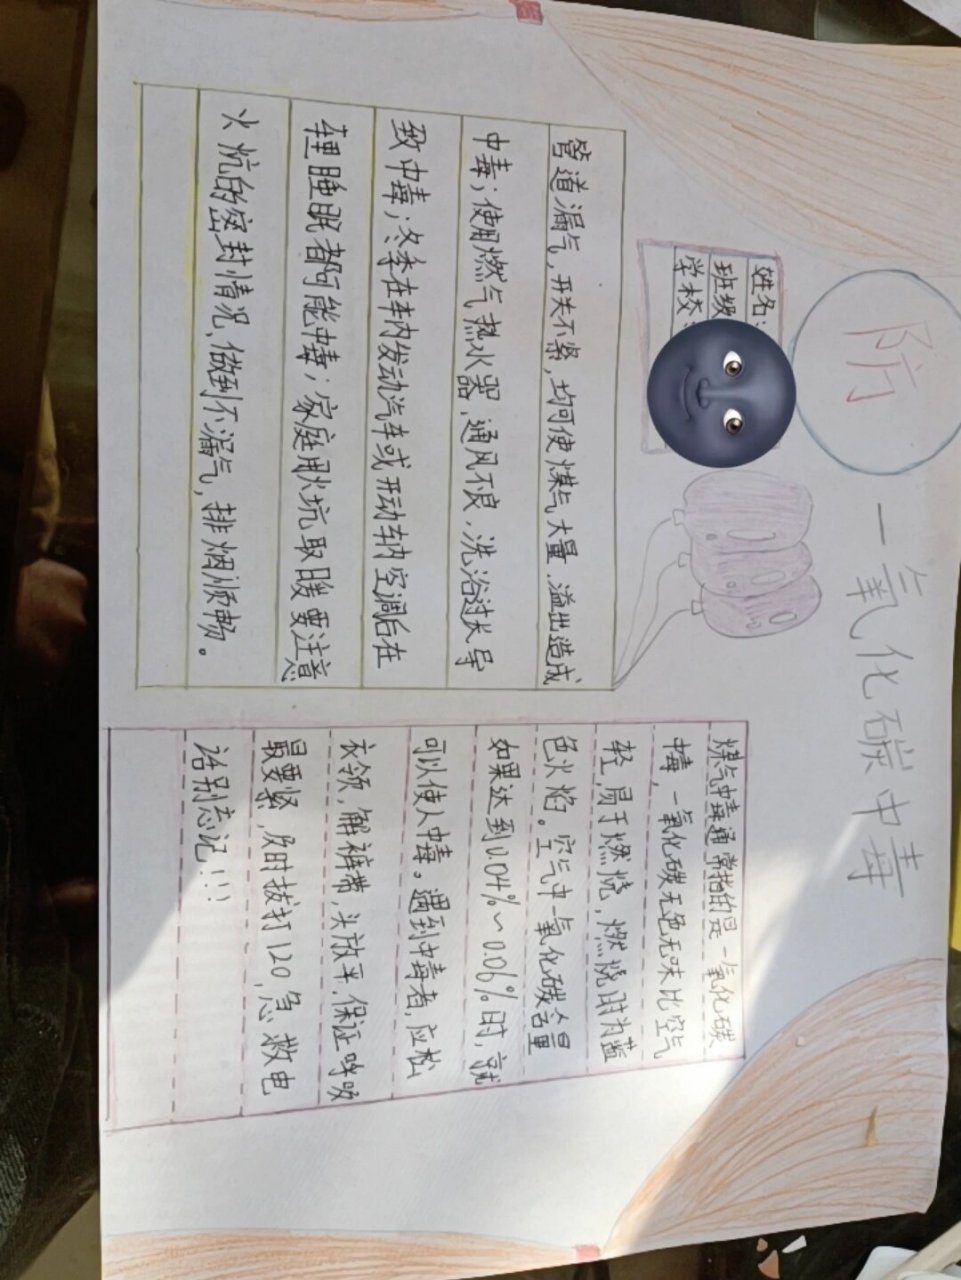 防一氧化碳中毒
姓名:
班级
学校:
管道漏气,开关不紧,均可使煤气大量溢出造成
中毒;使用燃气热水器,通风不良,洗浴过长导
致中毒;冬季在车内发动汽车或开动车内空调后在
车里睡眠都可能中毒;家庭用火坑取暖要注意
火炕的密封情况,做到不漏气,排烟顺畅。
煤气中毒通常指的是一氧化碳
中毒,一氧化碳无色无味比空气
轻,易于燃烧,燃烧时为蓝
色火焰。空气中一氧化碳含量
如果达到0.04%~0.06%时,就
可以使人中毒。遇到中毒者,应松
衣领,解裤带,头放平,保证呼吸
最要紧,及时拔打120,急救电
话别忘记!!!